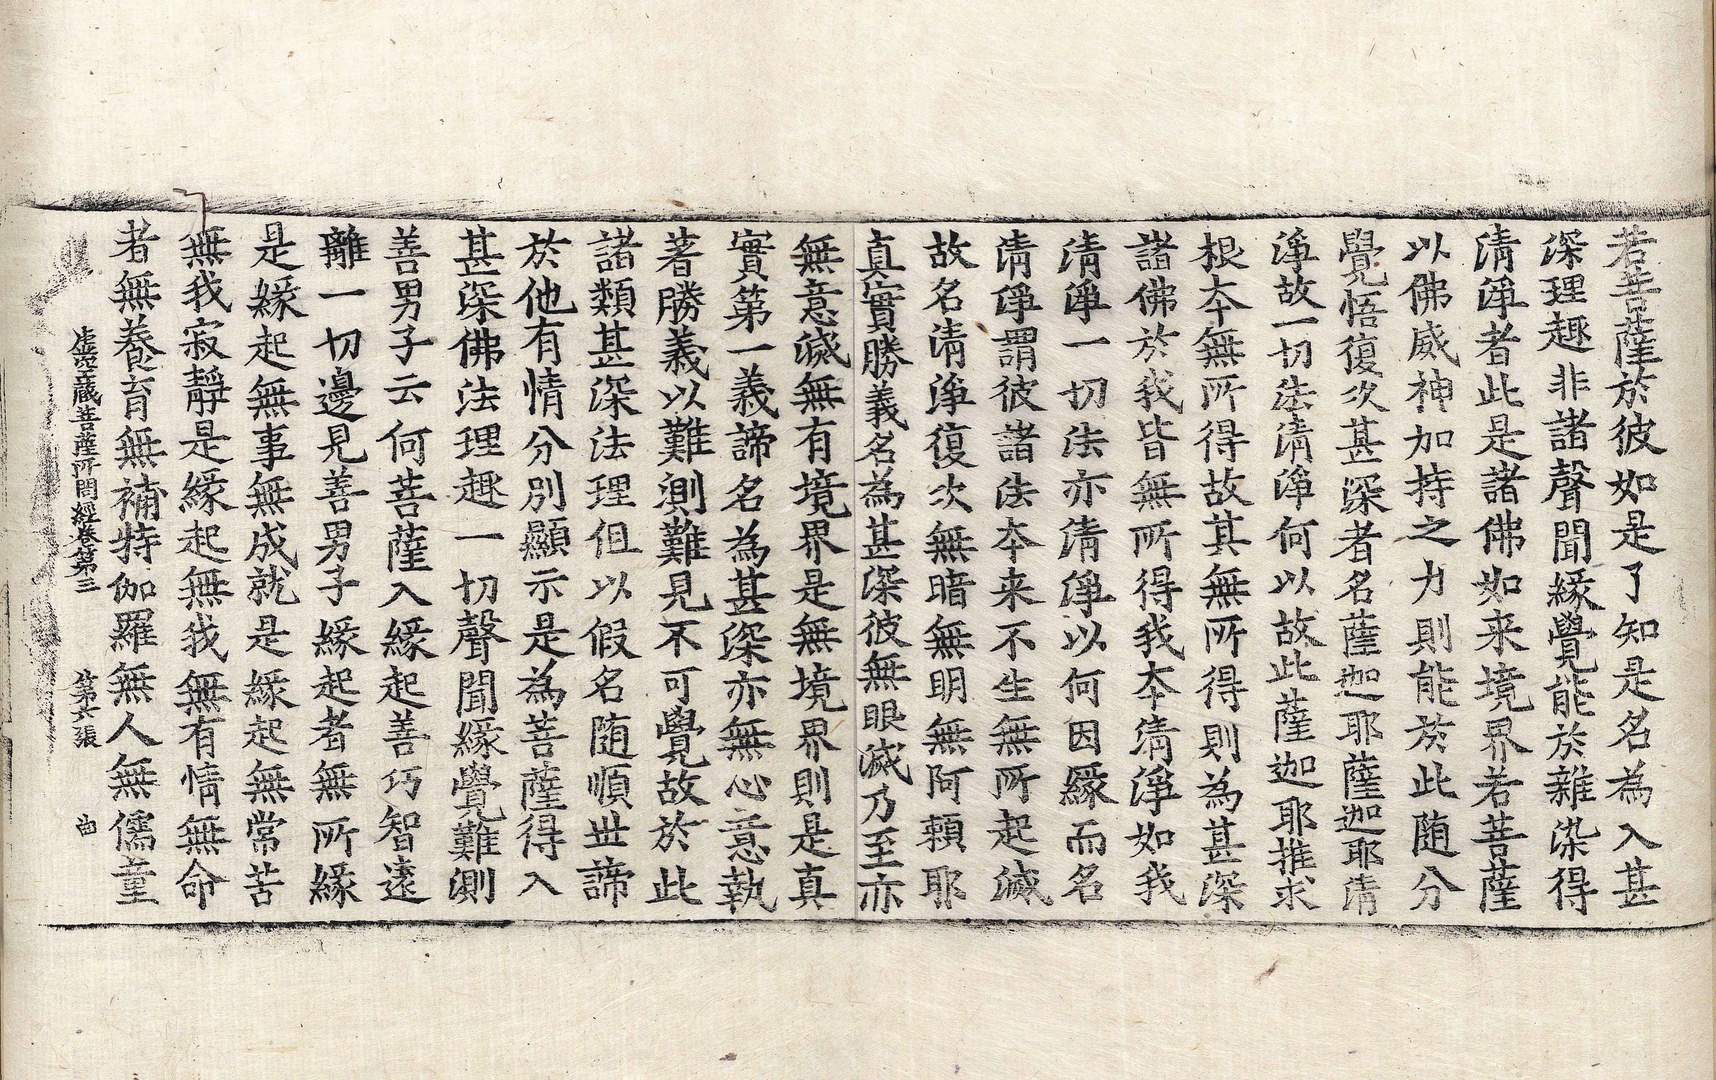 若菩薩於彼如是了知是名為入甚
深理趣非諸聲聞緣覺能於雜染得
清淨者此是諸佛如來境界若菩薩
以佛威神加持之力則能於此随分
覺悟復次甚深者名薩迦耶薩迦耶清
淨故一切法清淨何以故此薩迦耶推求
根本無所得故其無所得則為甚深
諸佛於我皆無所得我本清淨如我
清淨一切法亦清淨以何因緣而名
清淨謂彼諸法本来不生無所起滅
故名清淨復次無暗無明無阿賴耶
真實勝義名為甚深彼無眼滅乃至亦
無意滅無有境界是無境界則是真
實第一義諦名為甚深亦無心意執
著勝義以難測難見不可覺故於此
諸類甚深法理但以假名随順世諦
於他有情分別顯示是為菩薩得入
甚深佛法理趣一切聲聞緣覺難測
善男子云何菩薩入緣起善巧智遠
離一切邊見善男子緣起者無所緣
是緣起無事無成就是緣起無常苦
無我寂靜是緣起無我無有情無命
者無養育無補特伽羅無人無儒童
虛空藏菩薩所問經卷第三 第六張 曲